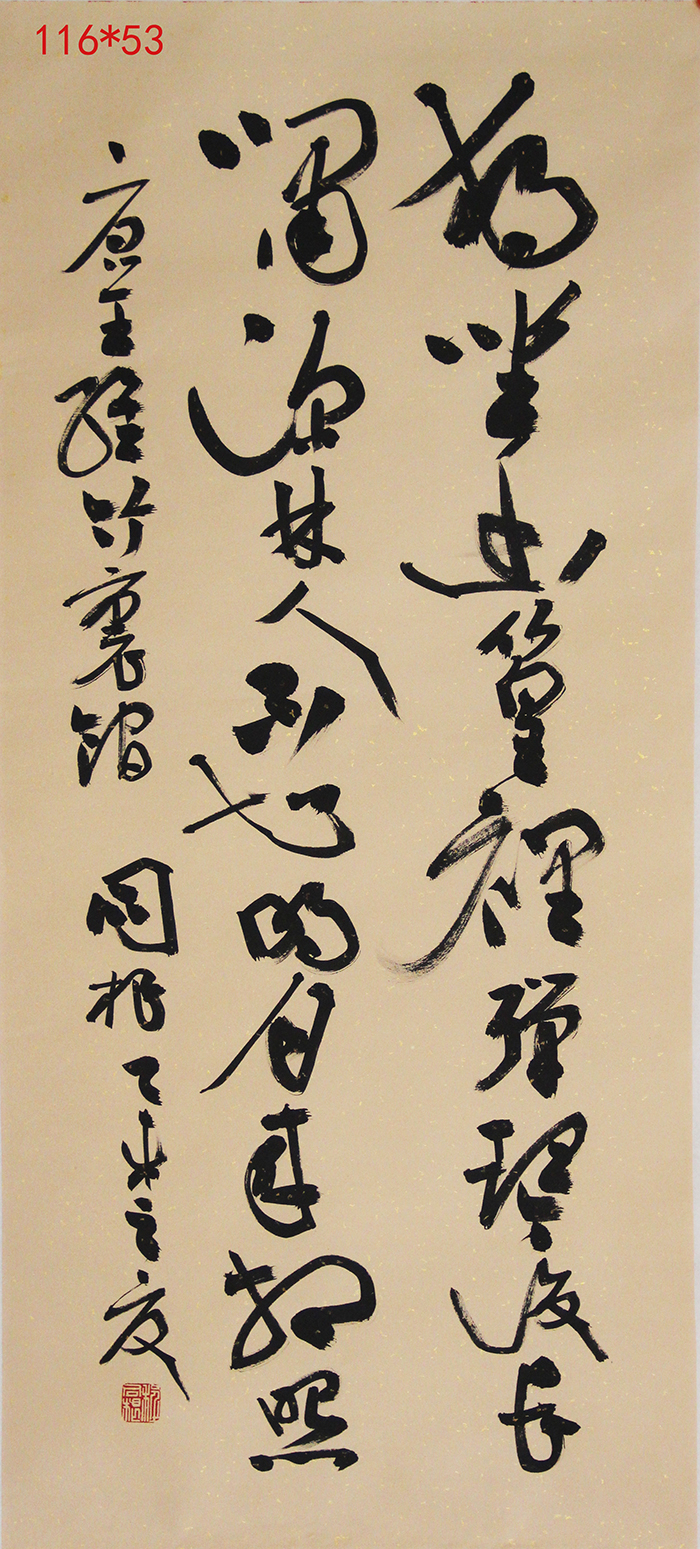 116*53
獨坐幽篁裡彈琴復長
嘯深林人不知明月來相照
唐王維竹裏館 乙未之夏